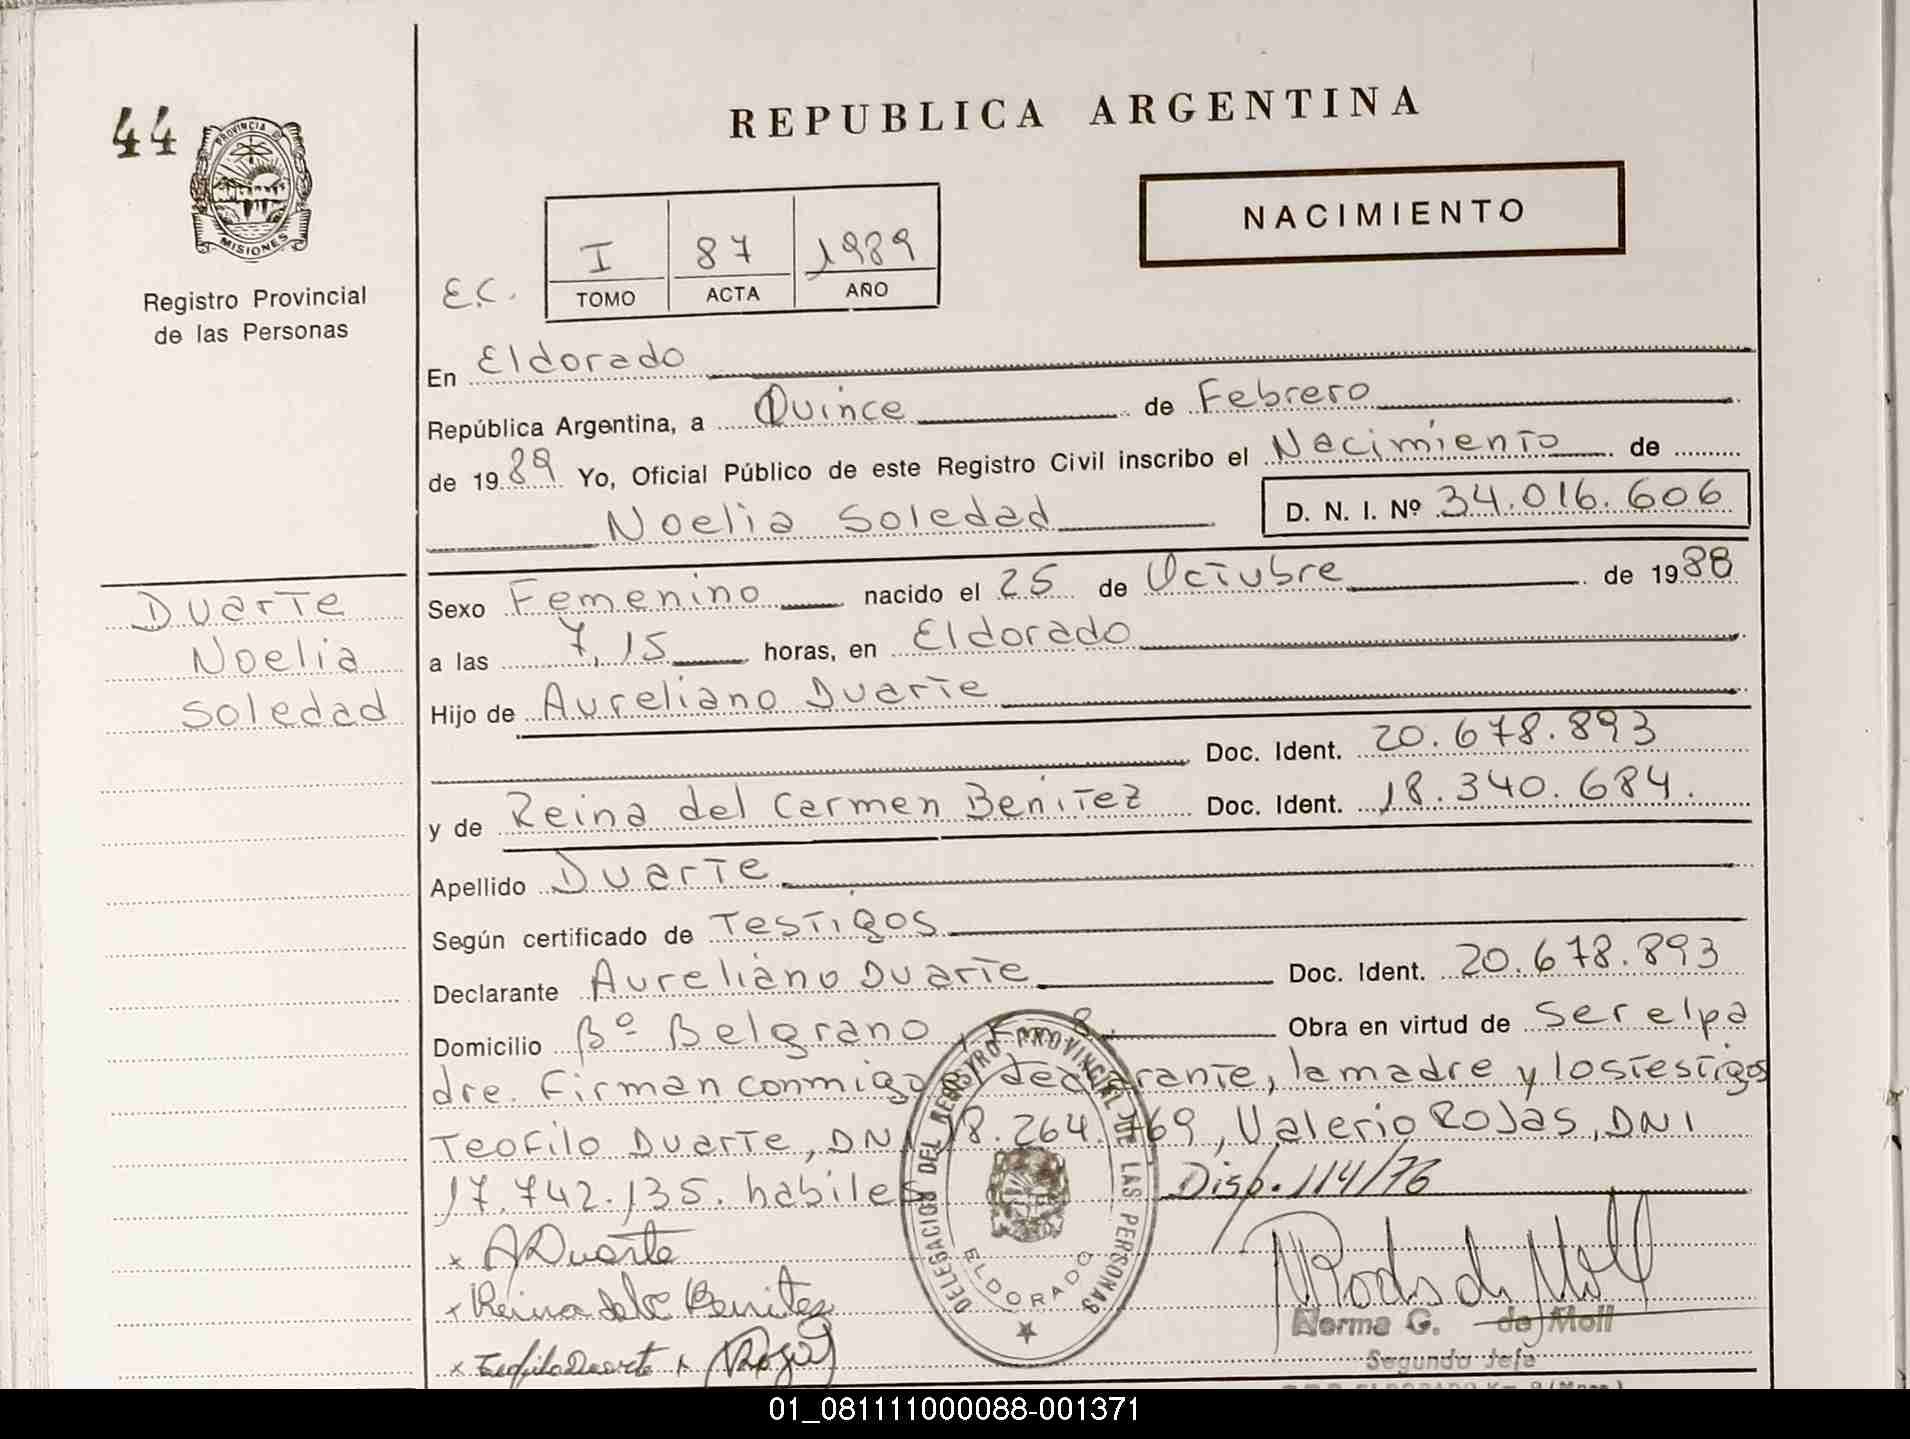 44
PROVINCIA DE
MISIONES
Registro Provincial
de las Personas
REPUBLICA ARGENTINA
NACIMIENTO
E.C.
I 87 1989
TOMO ACTA AÑO
En Eldorado
República Argentina, a Quince de Febrero
de 1989 Yo, Oficial Público de este Registro Civil inscribo el Nacimiento de
Noelia Soledad D. N. I. Nº 34.016.606
Duarte
Noelia
Soledad
Sexo Femenino nacido el 25 de Octubre de 1988
a las 7,15 horas, en Eldorado
Hijo de Aureliano Duarte
Doc. Ident. 20.678.893
y de Reina del Carmen Benitez Doc. Ident. 18.340.684.
Apellido Duarte
Según certificado de Testigos
Declarante Aureliano Duarte Doc. Ident. 20.678.893
Domicilio Bº Belgrano, Km 8. Obra en virtud de ser el pa
dre. Firman conmigo el declarante, la madre y los testigos
Teofilo Duarte, DNI 18.264.769, Valerio Rojas, DNI
17.742.135. habiles Disp. 114/76
DELEGACION DEL REGISTRO PROVINCIAL DE LAS PERSONAS
ELDORADO
x A Duarte
x Reina del C Benitez
x Teofilo Duarte x Rojas
Norma G. de Moll
Segundo Jefe
01_081111000088-001371